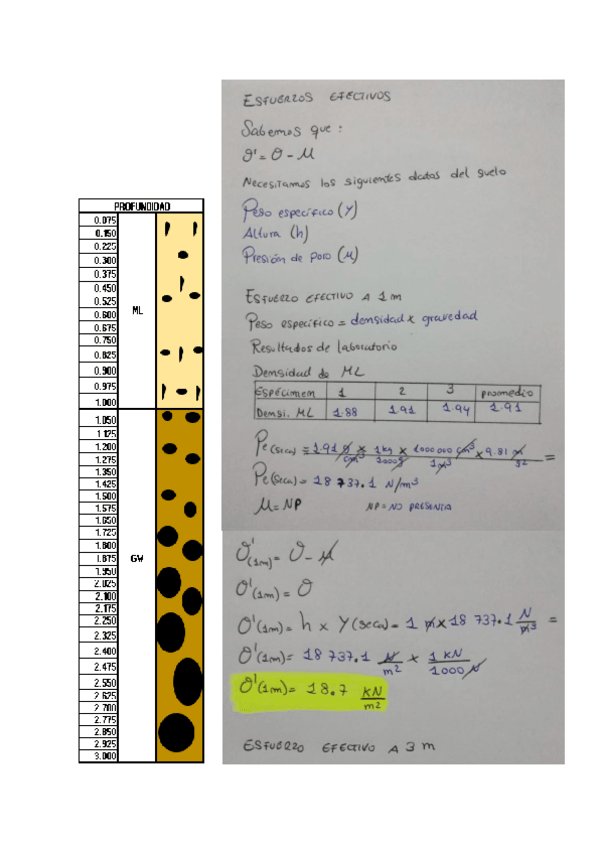 PROFUNDIDAD
0.075
0.150
0.225
0.300
0.375
0.450
0.525
0.600
0.675
0.750
0.825
0.900
0.975
1.000
ML
1.050
1.125
1.200
1.275
1.350
1.425
1.500
1.575
1.650
1.725
1.800
1.875
1.950
2.025
2.100
2.175
2.250
2.325
2.400
2.475
2.550
2.625
2.700
2.775
2.850
2.925
3.000
GW
ESFUERZOS EFECTIVOS
Sabemos que :
σ' = σ - μ
Necesitamos los siguientes datos del suelo
Peso específico (γ)
Altura (h)
Presión de poro (μ)
ESFUERZO EFECTIVO A 1 m
Peso específico = densidad x gravedad
Resultados de laboratorio
Densidad de ML
Espécimen 1 2 3 promedio
Densi. ML 1.88 1.91 1.94 1.91
Pe(seca) = 1.91 g/cm³ x 1 kg/1000 g x 1000 000 cm³/1 m³ x 9.81 m/s² =
Pe(seca) = 18 737.1 N/m³
μ = NP NP = NO PRESENTA
σ'(1m) = σ - μ
σ'(1m) = σ
σ'(1m) = h x γ(seca) = 1 m x 18 737.1 N/m³ =
σ'(1m) = 18 737.1 N/m² x 1 KN/1000 N
σ'(1m) = 18.7 KN/m²
ESFUERZO EFECTIVO A 3 m